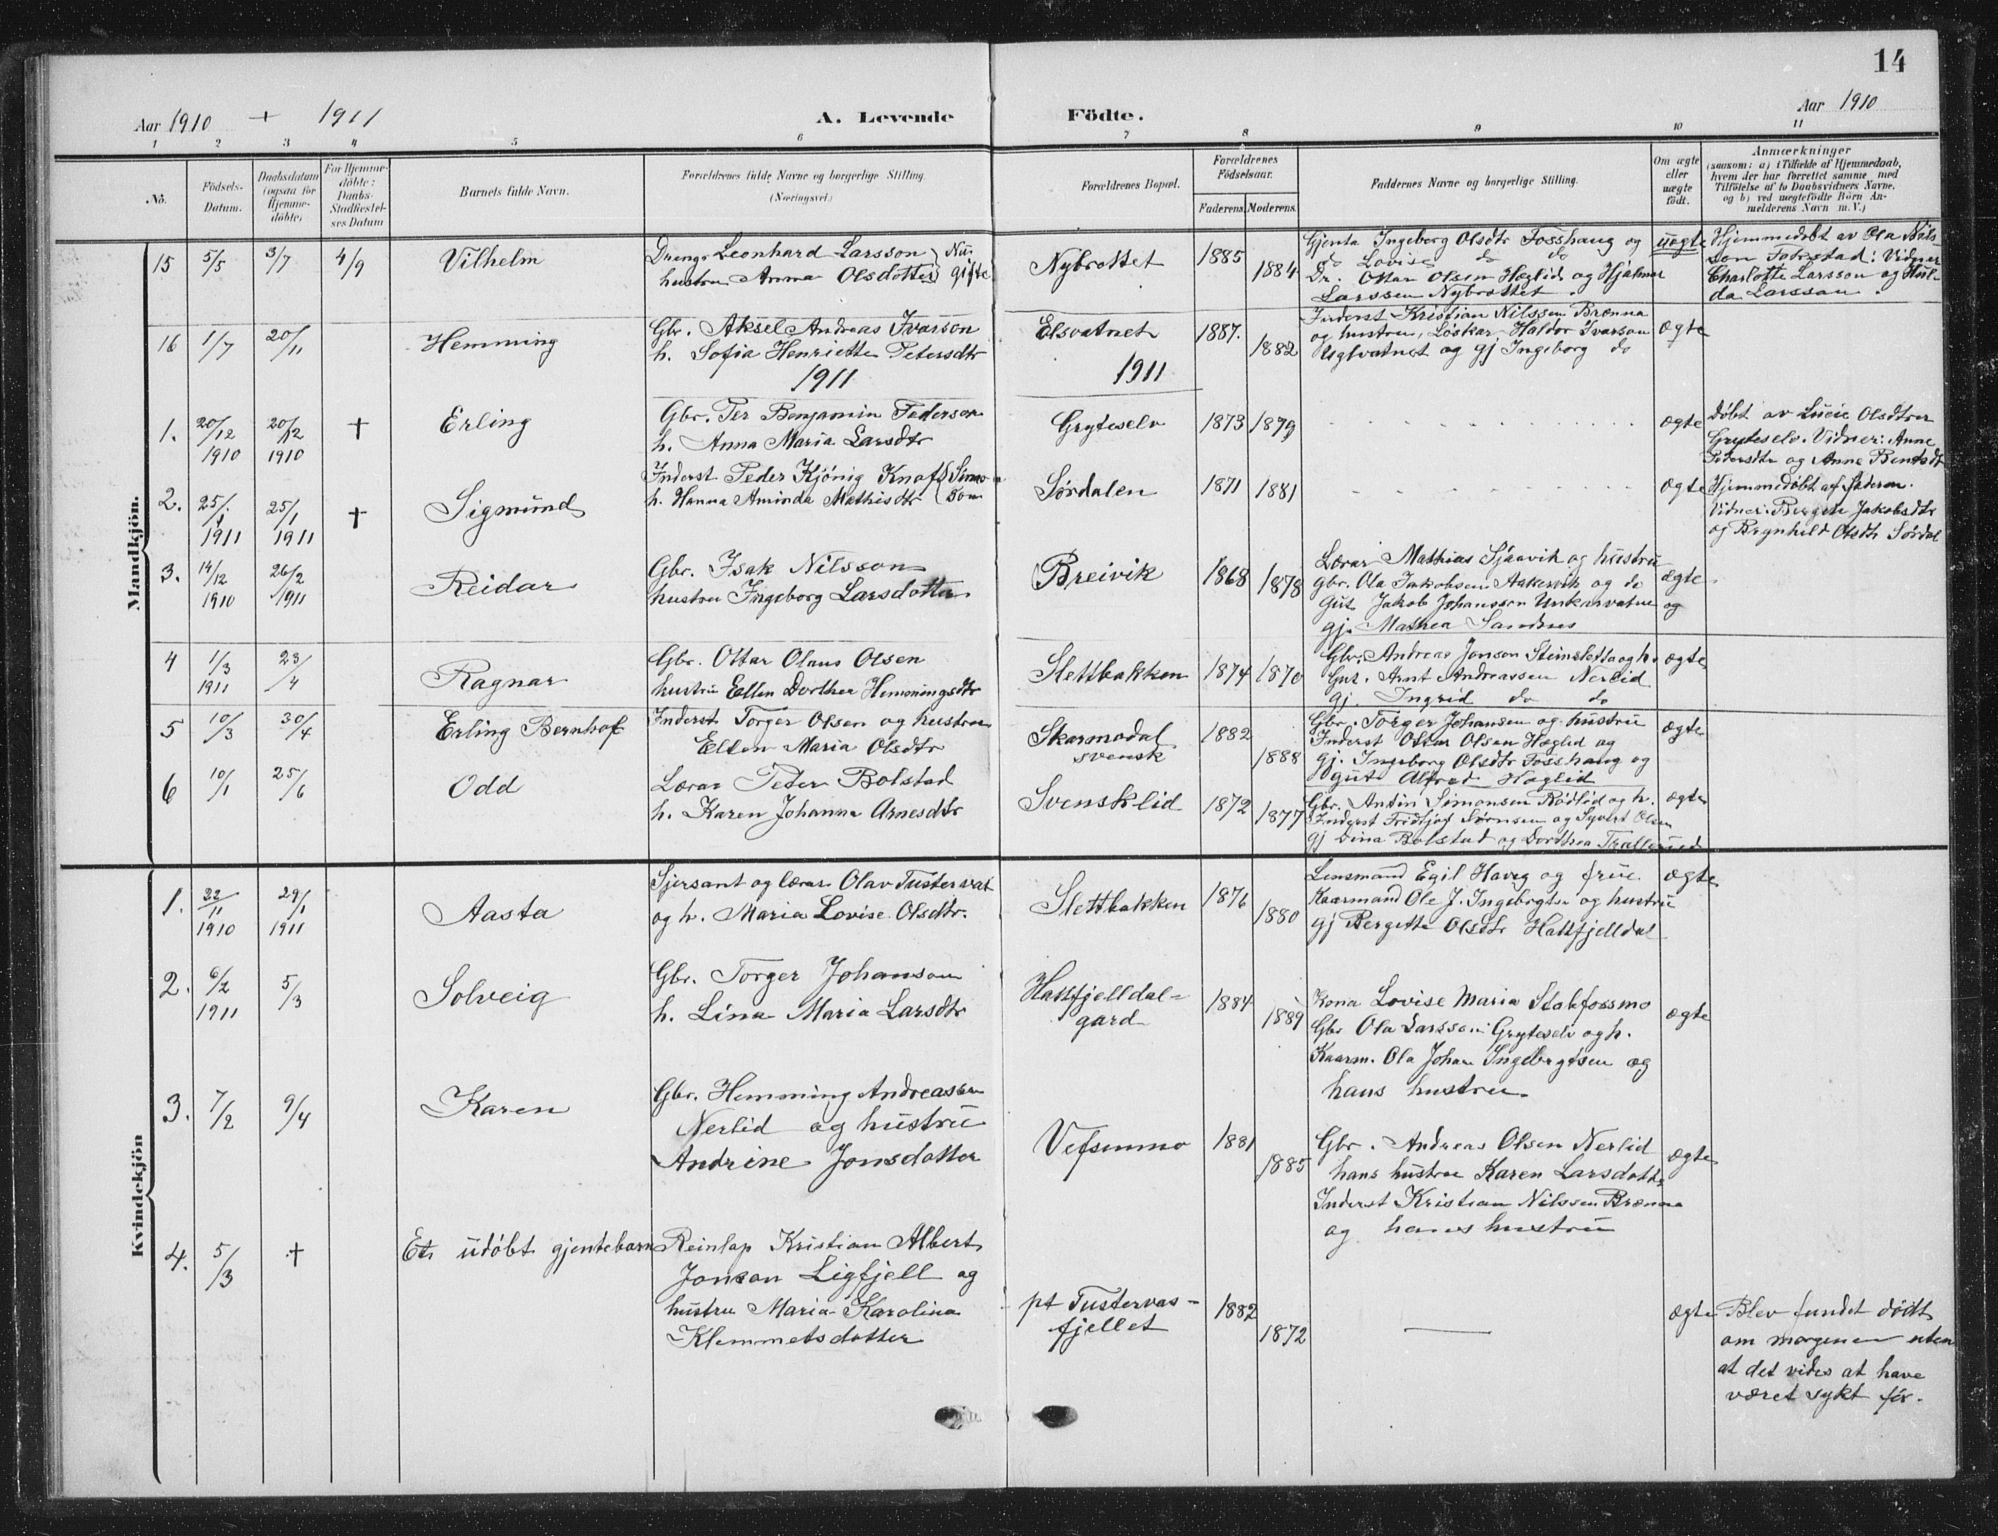 14
Aar 1910 + 1911 A. Levende Födte. Aar 1910
1 2 3 4 5 6 7 8 9 10 11
No. Födsels-Datum. Daabsdatum (ogsaa for Hjemme-döbte) For Hjemme-döbte: Daabs-Stadfæstelses Datum Barnets fulde Navn. Forældrenes fulde Navne og borgerlige Stilling. (Næringsvei.) Forældrenes Bopæl. Forældrenes Födselsaar. Faderens Moderens. Faddernes Navne og borgerlige Stilling. Om ægte eller uægte födt. Anmærkninger (saasom: a) i Tilfælde af Hjemmedaab, hvem der har forrettet samme, med Tilföielse af to Daabsvidners Navne, og b) ved uægtefödte Börn Anmelderens Navn m. V.)
Mandkjön.
15 5/5 3/7 4/9 Vilhelm
Dreng Leonhard Larsson Nu
hustru Anna Olsdotter gifte
Nybrottet 1885 1884
Gjenta Ingeborg Olsdtr Fosshaug og
do Lovise do do
Dr. Ottar Olsen Hæglid og Hjalmar
Larssen Nybrottet.
uægte
Hjemmedøbt av Ola Nils-
son : Vidner
Charlotte Larsson og Hul-
da Larsson.
16 1/7 20/11 Hemming
Gbr. Aksel Andreas Ivarson
h. Sofia Henriette Petersdtr
Elsvatnet 1887. 1882
Inderst Kristian Nilssen Brænna
og hustru, Løskar Haldor Ivarson
og gj Ingeborg do
ægte
1911 1911
1. 20/12 1910 20/12 1910 + Erling
Gbr. Per Benjamin Pederson
h. Anna Maria Larsdtr
Gryteselv 1873 1879
ægte
Døbt av Lucie Olsdtter
Gryteselv. Vidner: Anne
Pedersdtr og Anne Bentsdtr
2. 25/1 1911 25/1 1911 + Sigmund
Inderst Peder Kjönig Knofs Simon
h. Hanna Aminda Mathisdtr son
Sørdalen 1871 1881
ægte
Hjemmedøbt af faderen.
Vidner: Bergete Jakobsdtr
og Brynhild Olsdtr Sørdal
3. 14/12 1910 26/2 1911 Reidar
Gbr. Isak Nilsson
hustru Ingeborg Larsdotter
Breivik 1868 1878
Lærar Mathias Sjaavik og hustru
gbr. Ola Jakobsen Aakervik og do
Gut Jakob Johansson Unkervatne og
gj. Mathea Sandnes
ægte
4 1/3 1911 23/4 Ragnar
Gbr. Ottar Olaus Olsen
hustru Ellen Dorthea Hemmingsdtr
Slettbakken 1874 1870
Gbr. Andreas Jonson Steinsletta og h.
Gut. Arnt Andreassen Nerlid
gj. Ingrid do do
ægte
5 10/3 30/4 Erling Bernhof
Inderst Torger Olsen og hustru
Ellen Maria Olsdtr
Skarmodal
svensk
1882 1888
Gbr. Torger Johansen og hustru
Inderst Ottar Olsen Hæglid og
gj. Ingeborg Olsdtr Fosshaug og
gut Alfred Hæglid
ægte
6 10/1 25/6 Odd
Lærar Peter Bolstad
h. Karen Johanna Arnesdtr
Svensklid 1872 1877
Gbr. Andin Simonsen Rödlid og h.
Inderst Fridtjof Sørnsen og Syvert Olsen
gj Dina Bolstad og Dorthea
ægte
Kvindekjön
1. 22/11 1910 29/1 1911 Aasta
Sjersant og lærar Olav Tustervat
og h. Maria Lovise Olsdtr.
Slettbakken 1876 1880
Lensmand Egil Haveg og frue
Kaarmand Ole J. Ingebrgtsn og hustru
gj Bergette Olsdtr Hattfjelldal
ægte
2. 6/2 1911 5/3 Solveig
Gbr. Torger Johanson
h. Lina Maria Larsdtr
Hattfjelldal-
gard
1884 1889
Kona Lovise Maria Stabfossmo
Gbr Ola Larsson Gryteselv og h.
Kaarm. Ola Johan Ingebrgtsen og
hans hustru
ægte
3. 7/2 9/4 Karen
Gbr. Hemming Andreassen
Nerlid og hustru
Andrine Jonsdotter
Vefsenmo 1881 1885
Gbr. Andreas Olsen Nerlid
hans hustru Karen Larsdottr
Inderst Kristian Nilssen Brænna
og hans hustru
ægte
4. 5/3 + Et udøbt gjentebarn
Reinlap Kristian Albert
Jonson Ligfjell og
hustru Maria Karolina
Klemmetsdotter
pt Tustervas-
fjellet
1882 1872
ægte
Blev fundet dødt
om morgenen uten
at det vides at have
været sykt før.